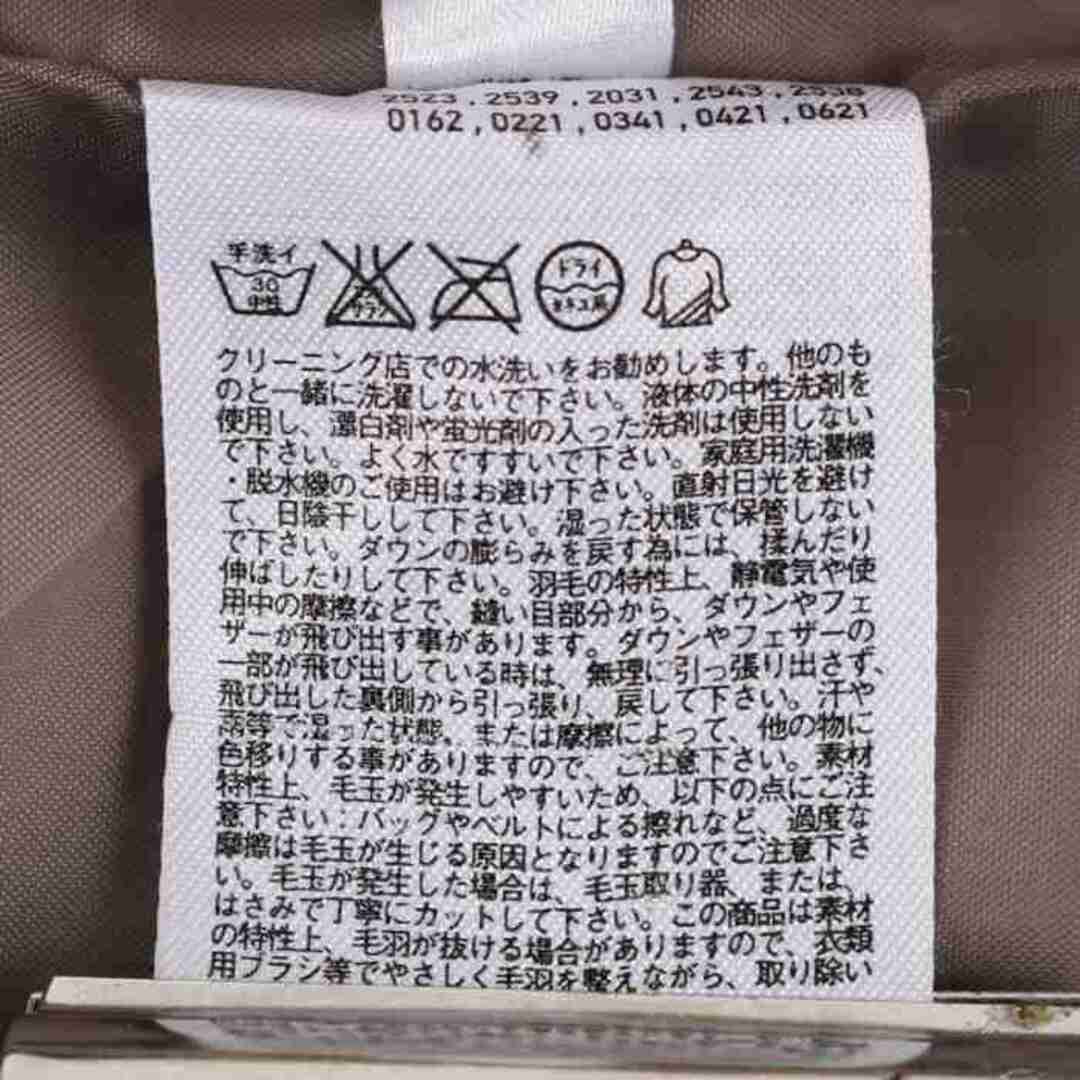 2523 , 2539 , 2031 , 2543 , 2538
0162 , 0221 , 0341 , 0421 , 0621
手洗イ
30
中性
エンソ
サラシ
ドライ
セキユ系
クリーニング店での水洗いをお勧めします。他のも
のと一緒に洗濯しないで下さい。液体の中性洗剤を
使用し、漂白剤や蛍光剤の入った洗剤は使用しない
で下さい。よく水ですすいで下さい。家庭用洗濯機
・脱水機のご使用はお避け下さい。直射日光を避け
て、日陰干しして下さい。湿った状態で保管しない
で下さい。ダウンの膨らみを戻す為には、揉んだり
伸ばしたりして下さい。羽毛の特性上、静電気や使
用中の摩擦などで、縫い目部分から、ダウンやフェ
ザーが飛び出す事があります。ダウンやフェザーの
一部が飛び出している時は、無理に引っ張り出さず、
飛び出した裏側から引っ張り、戻して下さい。汗や
雨等で湿った状態。または摩擦によって、他の物に
色移りする事がありますので、ご注意下さい。素材
特性上、毛玉が発生しやすいため、以下の点にご注
意下さい：バッグやベルトによる擦れなど、過度な
摩擦は毛玉が生じる原因となりますのでご注意下さ
い。毛玉が発生した場合は、毛玉取り器、または、
はさみで丁寧にカットして下さい。この商品は素材
の特性上、毛羽が抜ける場合がありますので、衣類
用ブラシ等でやさしく毛羽を整えながら、取り除い